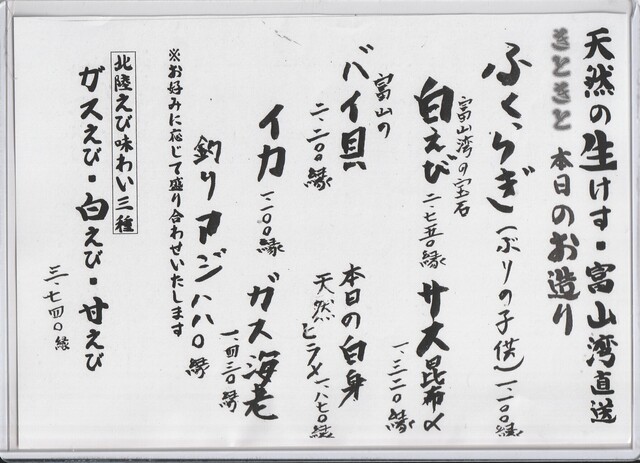 天然の生けす・富山湾直送
きときと 本日のお造り
ふくらぎ(ぶりの子供)一、一〇〇縁
富山湾の宝石
白えび 二、七五〇縁
サス昆布〆
一、三二〇縁
富山の
バイ貝
二、二〇〇縁
本日の白身
天然ヒラメ 一、八七〇縁
イカ
一、一〇〇縁
ガス海老
一、四三〇縁
釣りアジ 八八〇縁
※お好みに応じて盛り合わせいたします
北陸えび味わい三種
ガスえび・白えび・甘えび
三、七四〇縁